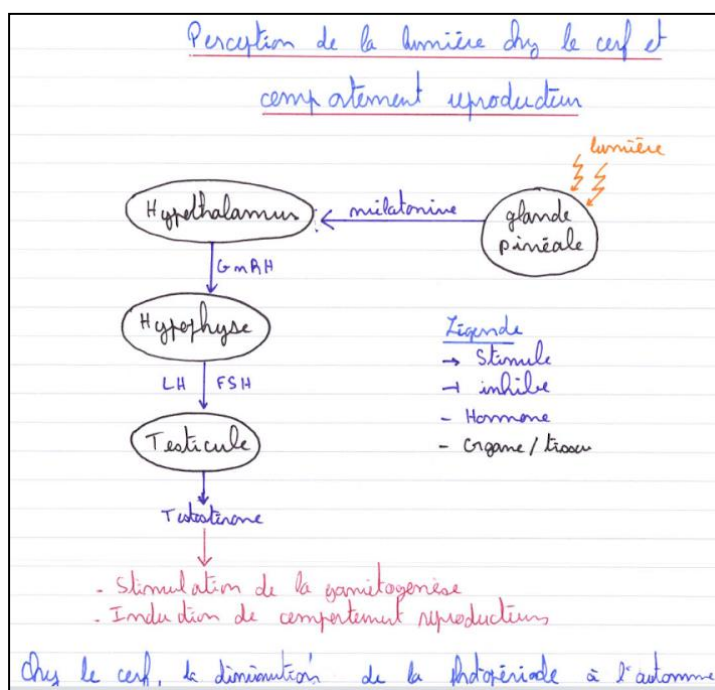 Perception de la lumière chez le cerf et
comportement reproducteur
lumière
Hypothalamus
mélatonine
glande
pinéale
GnRH
Hypophyse
LH FSH
Testicule
Testostérone
Légende
→ Stimule
⊣ inhibe
- Hormone
- Organe / tissu
- Stimulation de la gamétogenèse
- Induction de comportement reproducteurs
Chez le cerf, la diminution de la photopériode à l'automne